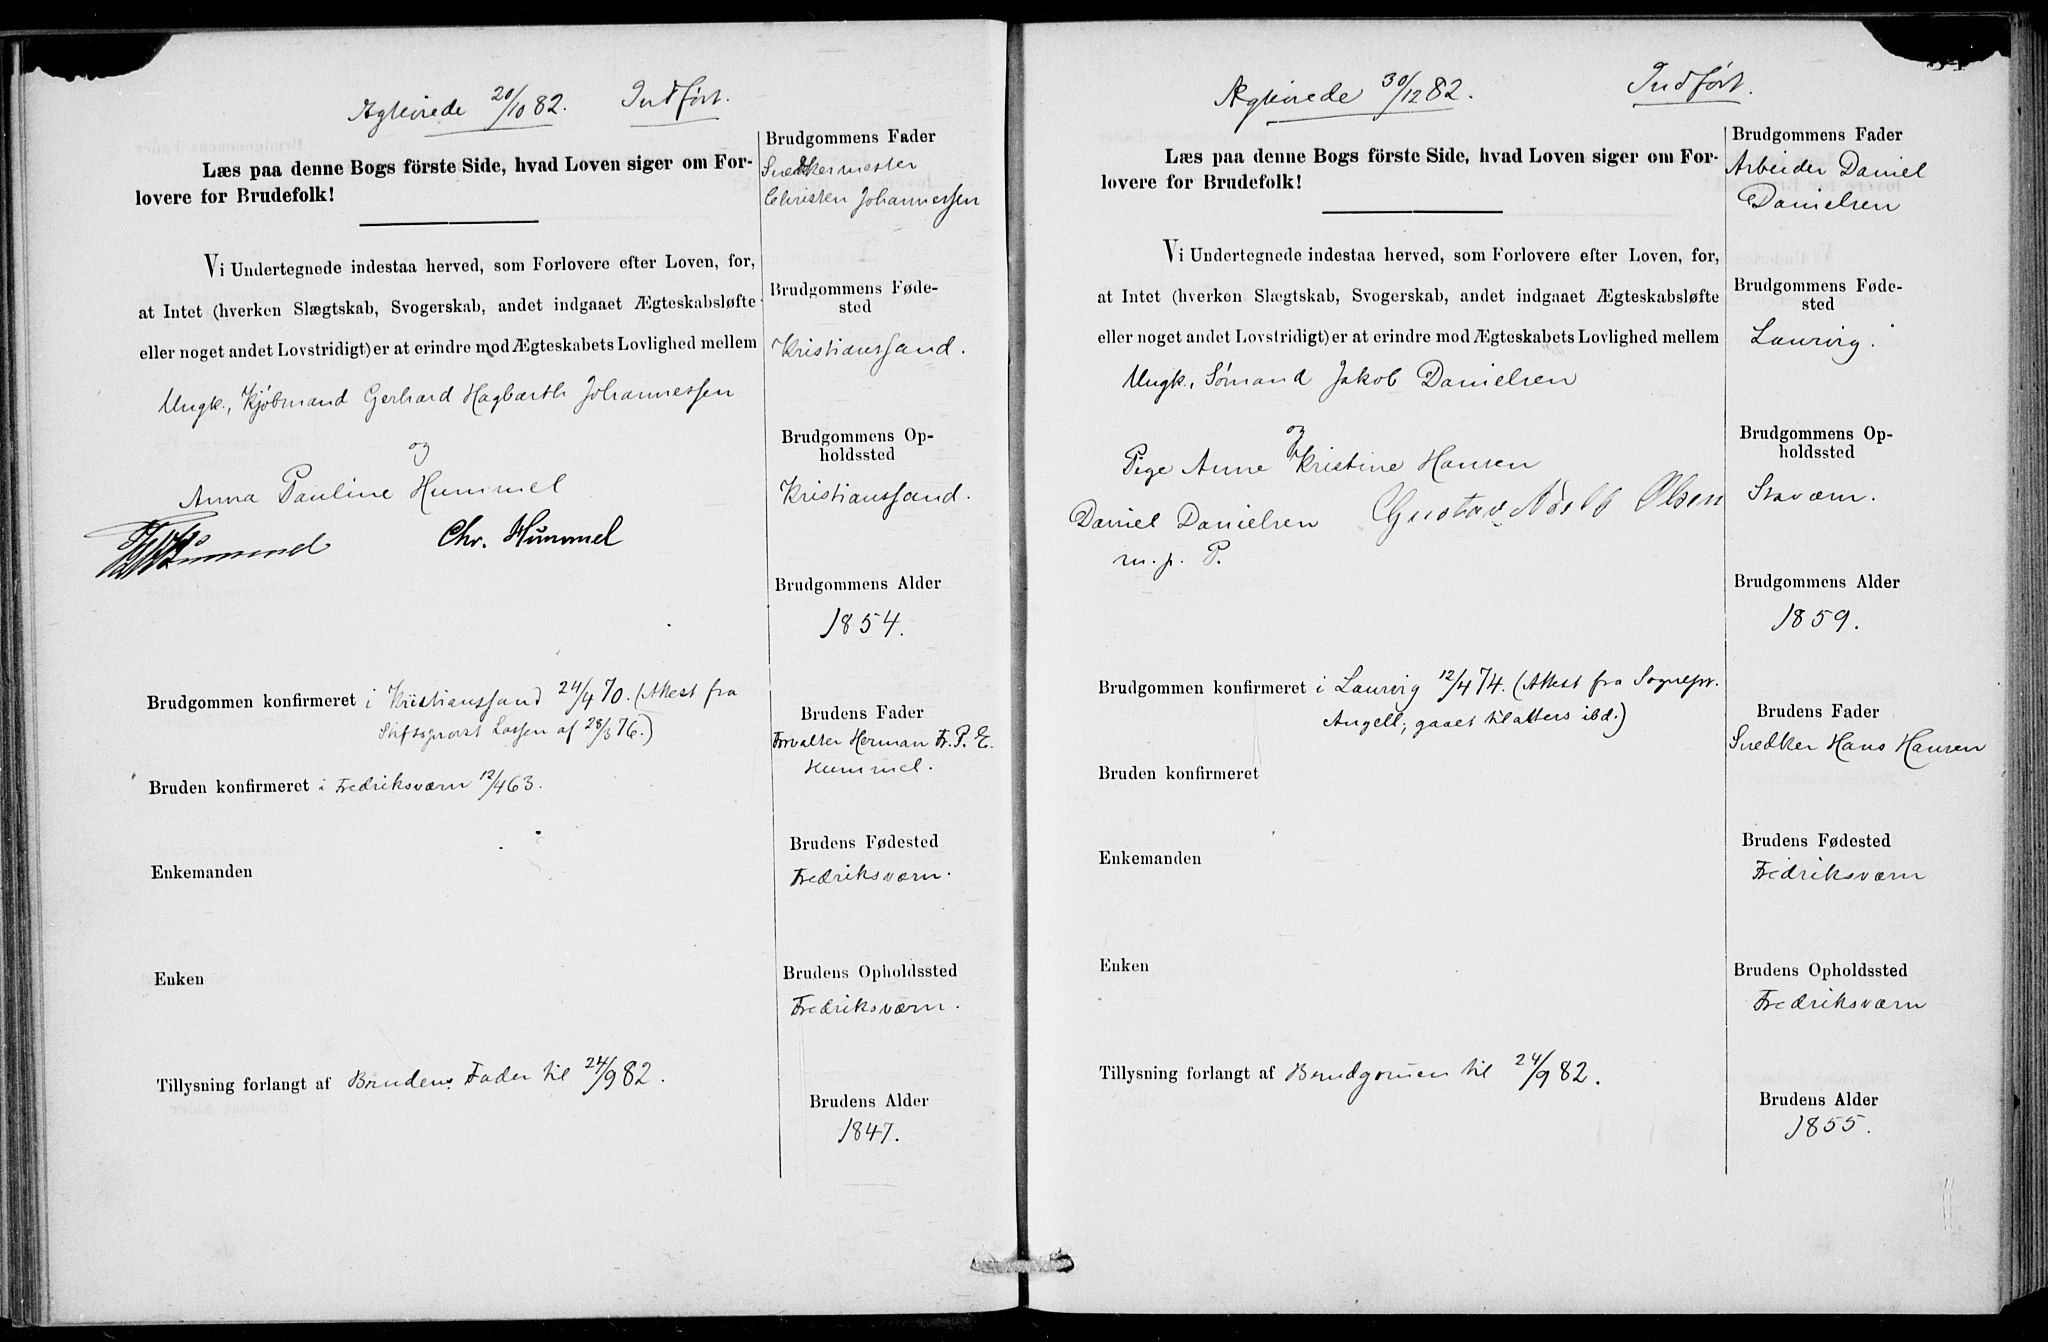 Ægteviede 20/10 82. Indført.
Læs paa denne Bogs förste Side, hvad Loven siger om For-
lovere for Brudefolk!
Vi Undertegnede indestaa herved, som Forlovere efter Loven, for,
at Intet (hverken Slægtskab, Svogerskab, andet indgaaet Ægteskabsløfte
eller noget andet Lovstridigt) er at erindre mod Ægteskabets Lovlighed mellem
Ungk., Kjöbmand Gerhard Hagbarth Johannessen
og
Anna Pauline Hummel
Hummel Chr. Hummel
Brudgommen konfirmeret i Kristianssand 24/4 70. (Attest fra
Stiftsprovst Lassen af 28/3 76.)
Bruden konfirmeret i Fredriksværn 12/4 63.
Enkemanden
Enken
Tillysning forlangt af Brudens Fader til 24/9 82.
Brudgommens Fader
Snedkermester
Christen Johannessen
Brudgommens Føde-
sted
Kristianssand.
Brudgommens Op-
holdssted
Kristianssand.
Brudgommens Alder
1854.
Brudens Fader
Forvalter Herman Fr. P. E.
Hummel.
Brudens Fødested
Fredriksværn.
Brudens Opholdssted
Fredriksværn.
Brudens Alder
1847.
Ægteviede 30/12 82. Indført.
Læs paa denne Bogs förste Side, hvad Loven siger om For-
lovere for Brudefolk!
Vi Undertegnede indestaa herved, som Forlovere efter Loven, for,
at Intet (hverken Slægtskab, Svogerskab, andet indgaaet Ægteskabsløfte
eller noget andet Lovstridigt) er at erindre mod Ægteskabets Lovlighed mellem
Ungk., Sömand Jakob Danielsen
og
Pige Anne Kristine Hansen
Daniel Danielsen Gustav Adolf Olsen
m. p. P.
Brudgommen konfirmeret i Laurvig 12/4 74. (Attest fra Sognepr.
Angell; gaaet tilalters ibd.)
Bruden konfirmeret
Enkemanden
Enken
Tillysning forlangt af Brudgomen til 24/9 82.
Brudgommens Fader
Arbeider Daniel
Danielsen
Brudgommens Føde-
sted
Laurvig.
Brudgommens Op-
holdssted
Staværn.
Brudgommens Alder
1859.
Brudens Fader
Snedker Hans Hansen
Brudens Fødested
Fredriksværn
Brudens Opholdssted
Fredriksværn
Brudens Alder
1855.